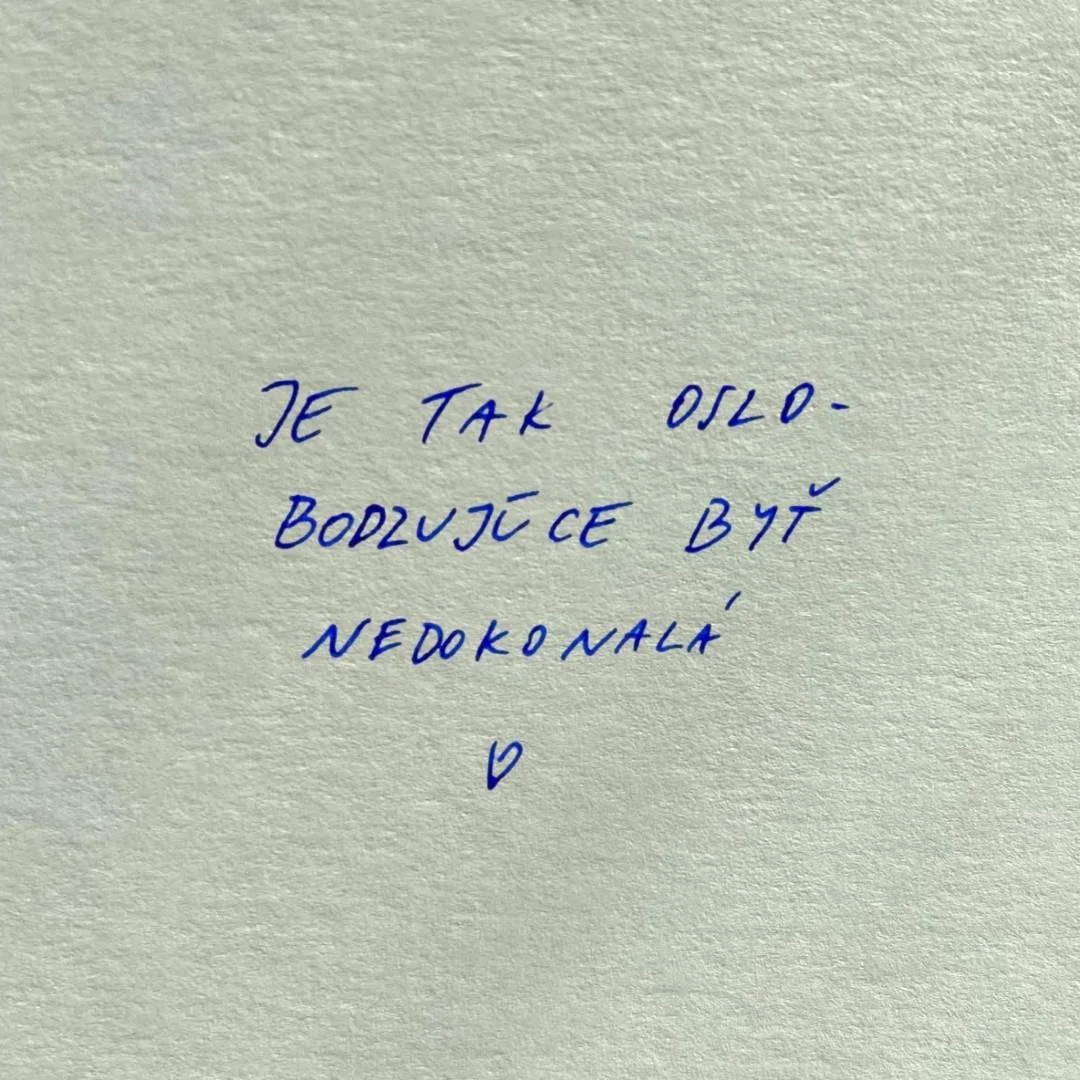 JE TAK OSLO-
BODZUJÚCE BYŤ
NEDOKONALÁ